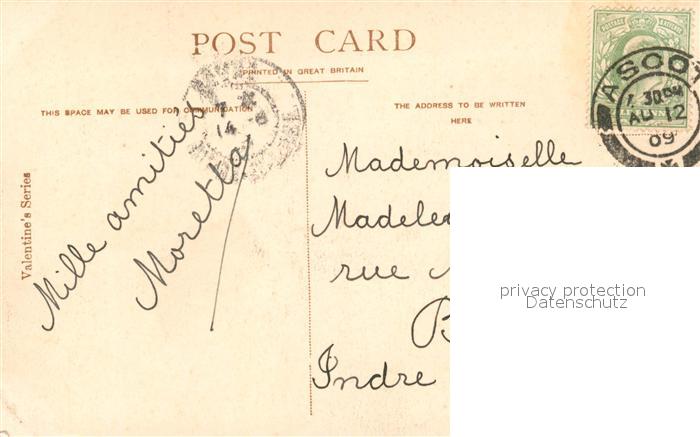 POST CARD
PRINTED IN GREAT BRITAIN
THIS SPACE MAY BE USED FOR COMMUNICATION
THE ADDRESS TO BE WRITTEN
HERE
Valentine's Series
Mille amitiés
Moretta
Mademoiselle
rue
Indre
ASCOT
AU 12
09
14
privacy protection
Datenschutz